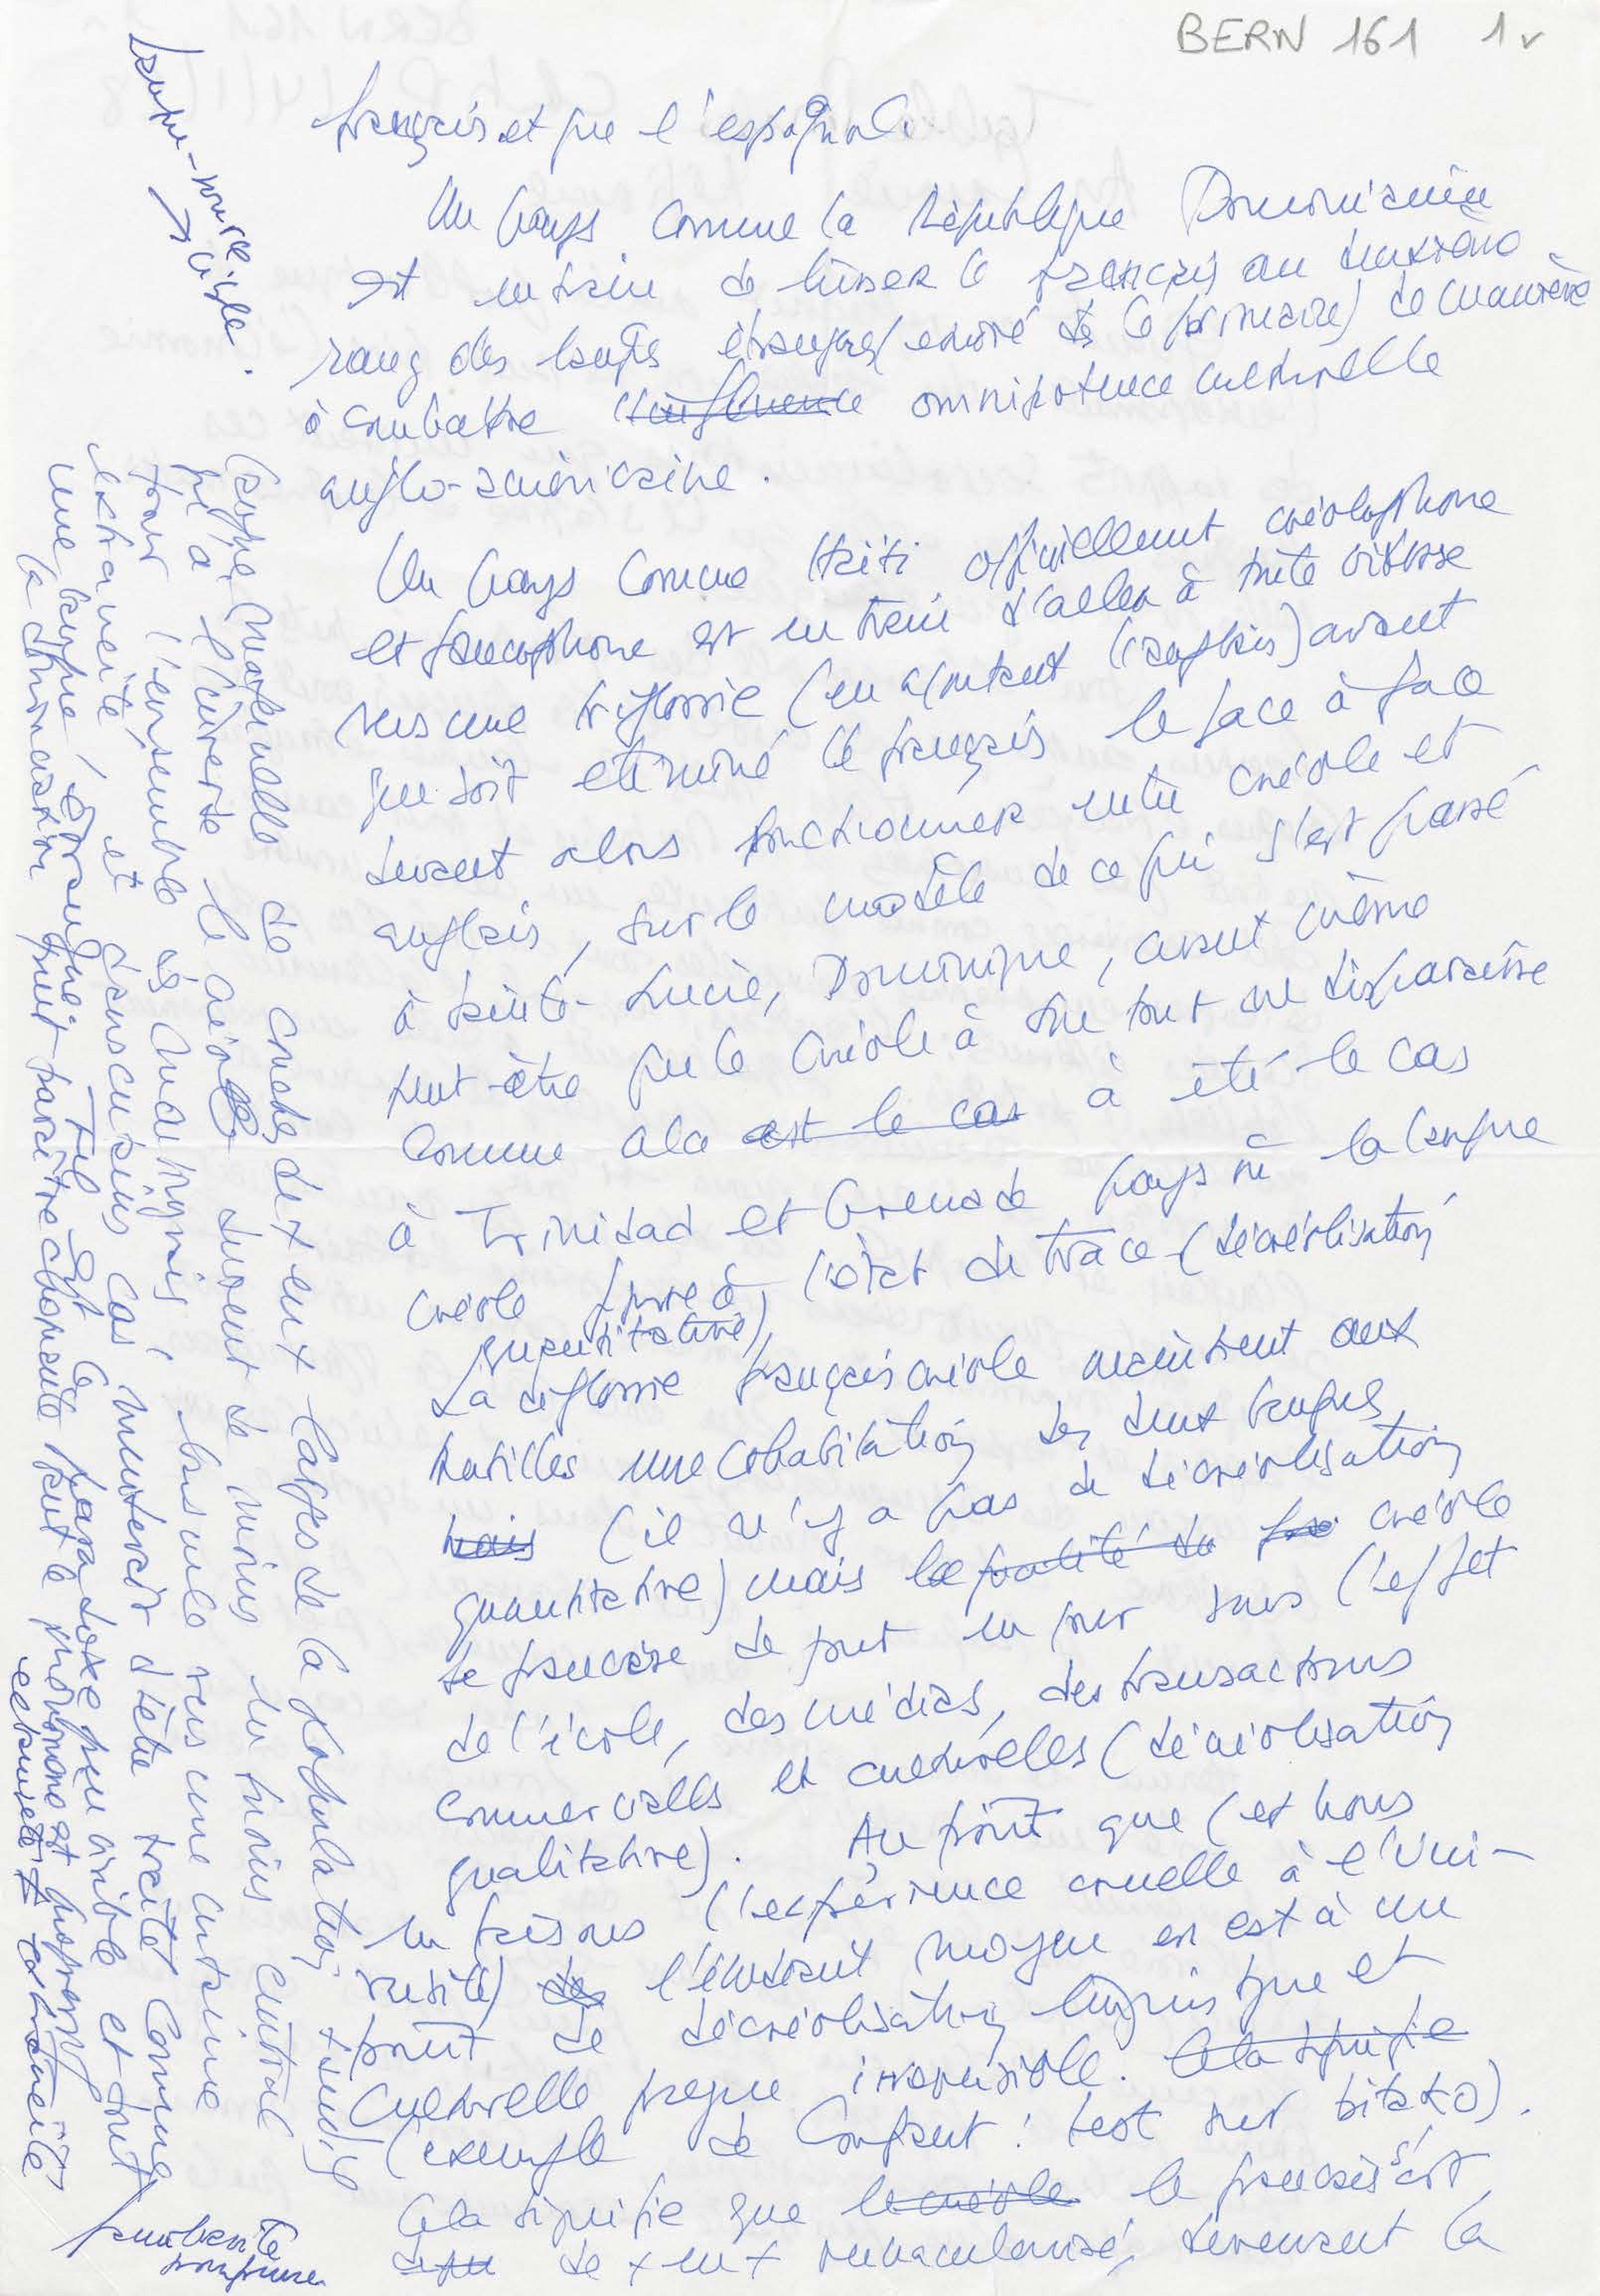 BERN 161 1v
français et que l'espagnol.
Un pays comme la République Dominicaine
est en train de hisser le français au deuxième
rang des langues étrangères (enseigné dès le primaire) de manière
à combattre l'influence omnipotence culturelle
anglo-américaine.
Un pays comme Haïti officiellement créolophone
et francophone est en train d'aller à toute vitesse
vers une triglossie (en ajoutant l'anglais) avant
que soit éliminé le français le face à face
devant alors fonctionner entre créole et
anglais, sur le modèle de ce qui s'est passé
à Sainte-Lucie, Dominique, avant même
peut-être que le créole à son tour ne disparaisse
comme cela est le cas à été le cas
à Trinidad et Grenade pays où la langue
créole à l'état de trace (décréolisation
quantitative),
La diglossie français créole maintient aux
Antilles une cohabitation des deux langues
mais (il n'y a pas de décréolisation
quantitative) mais la qualité du créole
se francise de jour en jour sous l'effet
de l'école, des médias, des transactions
commerciales et culturelles (décréolisation
qualitative). Au point que (et nous
en faisons l'expérience cruelle à l'Uni-
versité) l'étudiant moyen en est à un
point de décréolisation linguistique et
culturelle presque irréversible. Cela signifie
(exemple de Confiant : test sur bitako).
Cela signifie que le créole le français s'est
de + en + vernacularisé, devenant la
langue maternelle de couches de + en + larges de la population, tandis
qu'à l'inverse le créole devient de moins en moins central
pour l'ensemble des Antillais, bascule vers une certaine
extranéité, et dans certains cas menacerait d'être traité comme
une langue étrangère. Tel est le paradoxe peu visible et dont
la dénomination peut paraître choquante tant le phénomène est proprement
langue-source
→ cible.